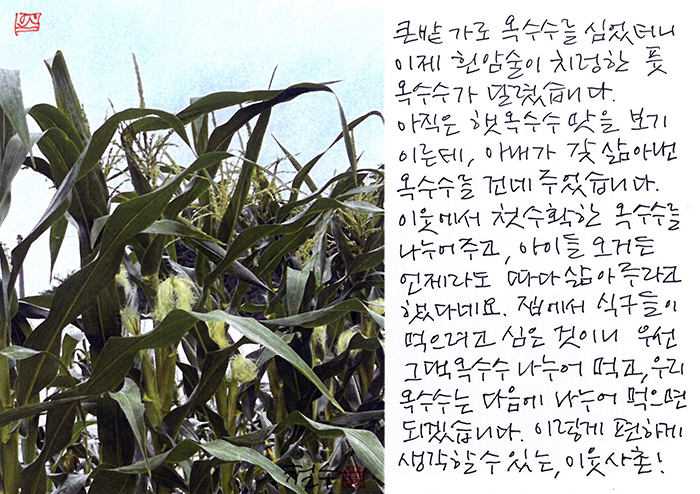 큰밭 가로 옥수수를 심었더니
이제 흰암술이 치렁한 풋
옥수수가 달렸습니다.
아직은 햇옥수수 맛을 보기
이른데, 아내가 갓 삶아낸
옥수수를 건네 주었습니다.
이웃에서 첫수확한 옥수수를
나누어주고, 아이들 오거든
언제라도 따다 삶아 주라고
했다네요. 집에서 식구들이
먹으려고 심은 것이니 우선
그댁옥수수 나누어 먹고, 우리
옥수수는 다음에 나누어 먹으면
되겠습니다. 이렇게 편하게
생각할 수 있는, 이웃사촌!